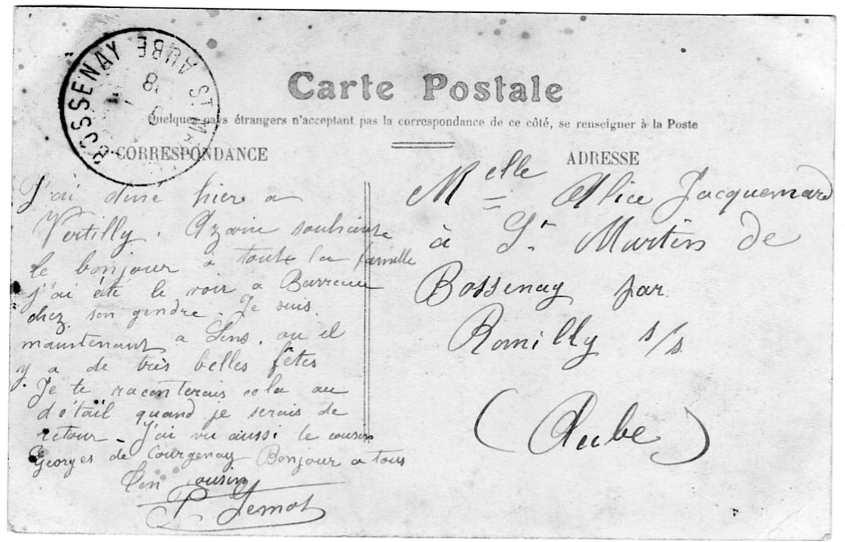 ST MARTIN DE BOSSENAY AUBE
Carte Postale
Quelques pays étrangers n'acceptant pas la correspondance de ce côté, se renseigner à la Poste
CORRESPONDANCE
J'ai dine hier a
Vertilly. souhaite
le bonjour a toute la famille
j'ai été le voir a
chez son gendre. Je suis
maintenant a Sens. ou il
y a de très belles fêtes
Je te raconterais cela au
détail quand je serais de
retour - J'ai vu aussi le cousin
Georges de Courgenay Bonjour a tous
Ton cousin
P.
ADRESSE
Melle Alice Jacquemard
à St Martin de
Bossenay par
Romilly s/s
(Aube)